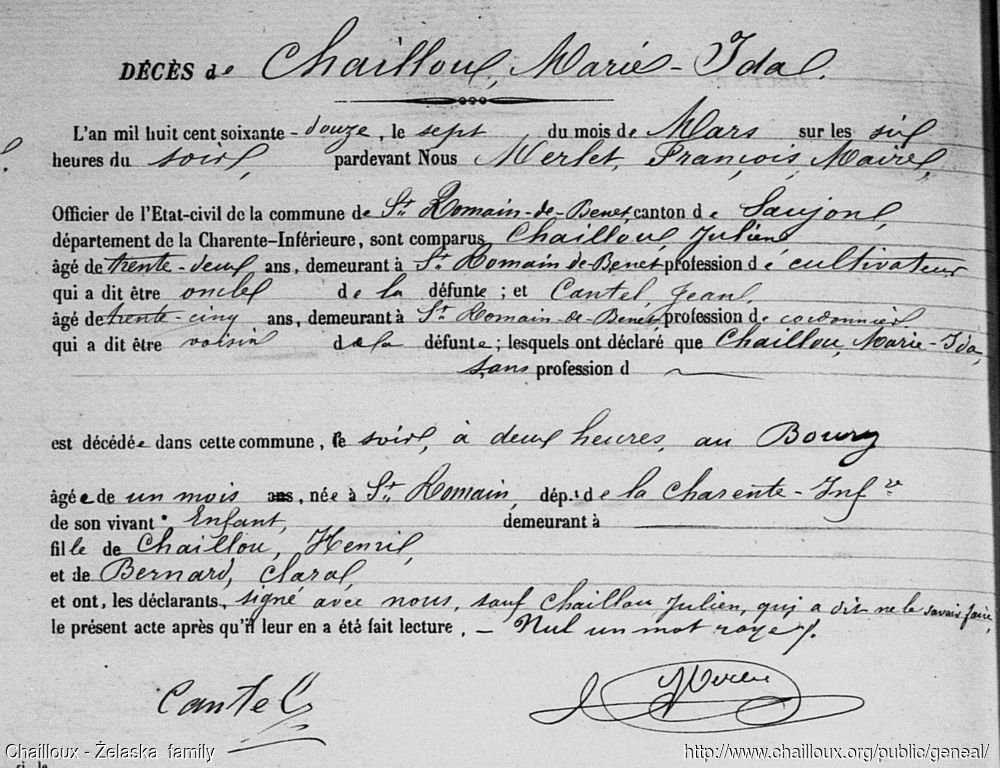 DÉCÈS de Chaillou, Marie-Ida.
L'an mil huit cent soixante-douze, le sept du mois de Mars sur les six
heures du soir, pardevant Nous Merlet, François, Maire,
Officier de l'Etat-civil de la commune de St. Romain-de-Benet canton de Saujon,
département de la Charente-Inférieure, sont comparus Chaillou, Julien
âgé de trente-deux ans, demeurant à St. Romain de-Benet profession de cultivateur
qui a dit être oncle de la défunte ; et Cantel, Jean,
âgé de trente-cinq ans, demeurant à St. Romain-de-Benet, profession de cordonnier
qui a dit être voisin de la défunte ; lesquels ont déclaré que Chaillou, Marie-Ida,
sans profession d
est décédée dans cette commune, le soir, à deux heures, au Bourg
âgée de un mois ans, née à St. Romain, dép.t de la Charente-Infre
de son vivant Enfant, demeurant à
fille de Chaillou, Henri,
et de Bernard, Clara,
et ont, les déclarants, signé avec nous, sauf Chaillou Julien, qui a dit ne le savoir faire,
le présent acte après qu'il leur en a été fait lecture. — Nul un mot rayé.
Cantel
Merlet
Chailloux - Żelaska family http://www.chailloux.org/public/geneal/